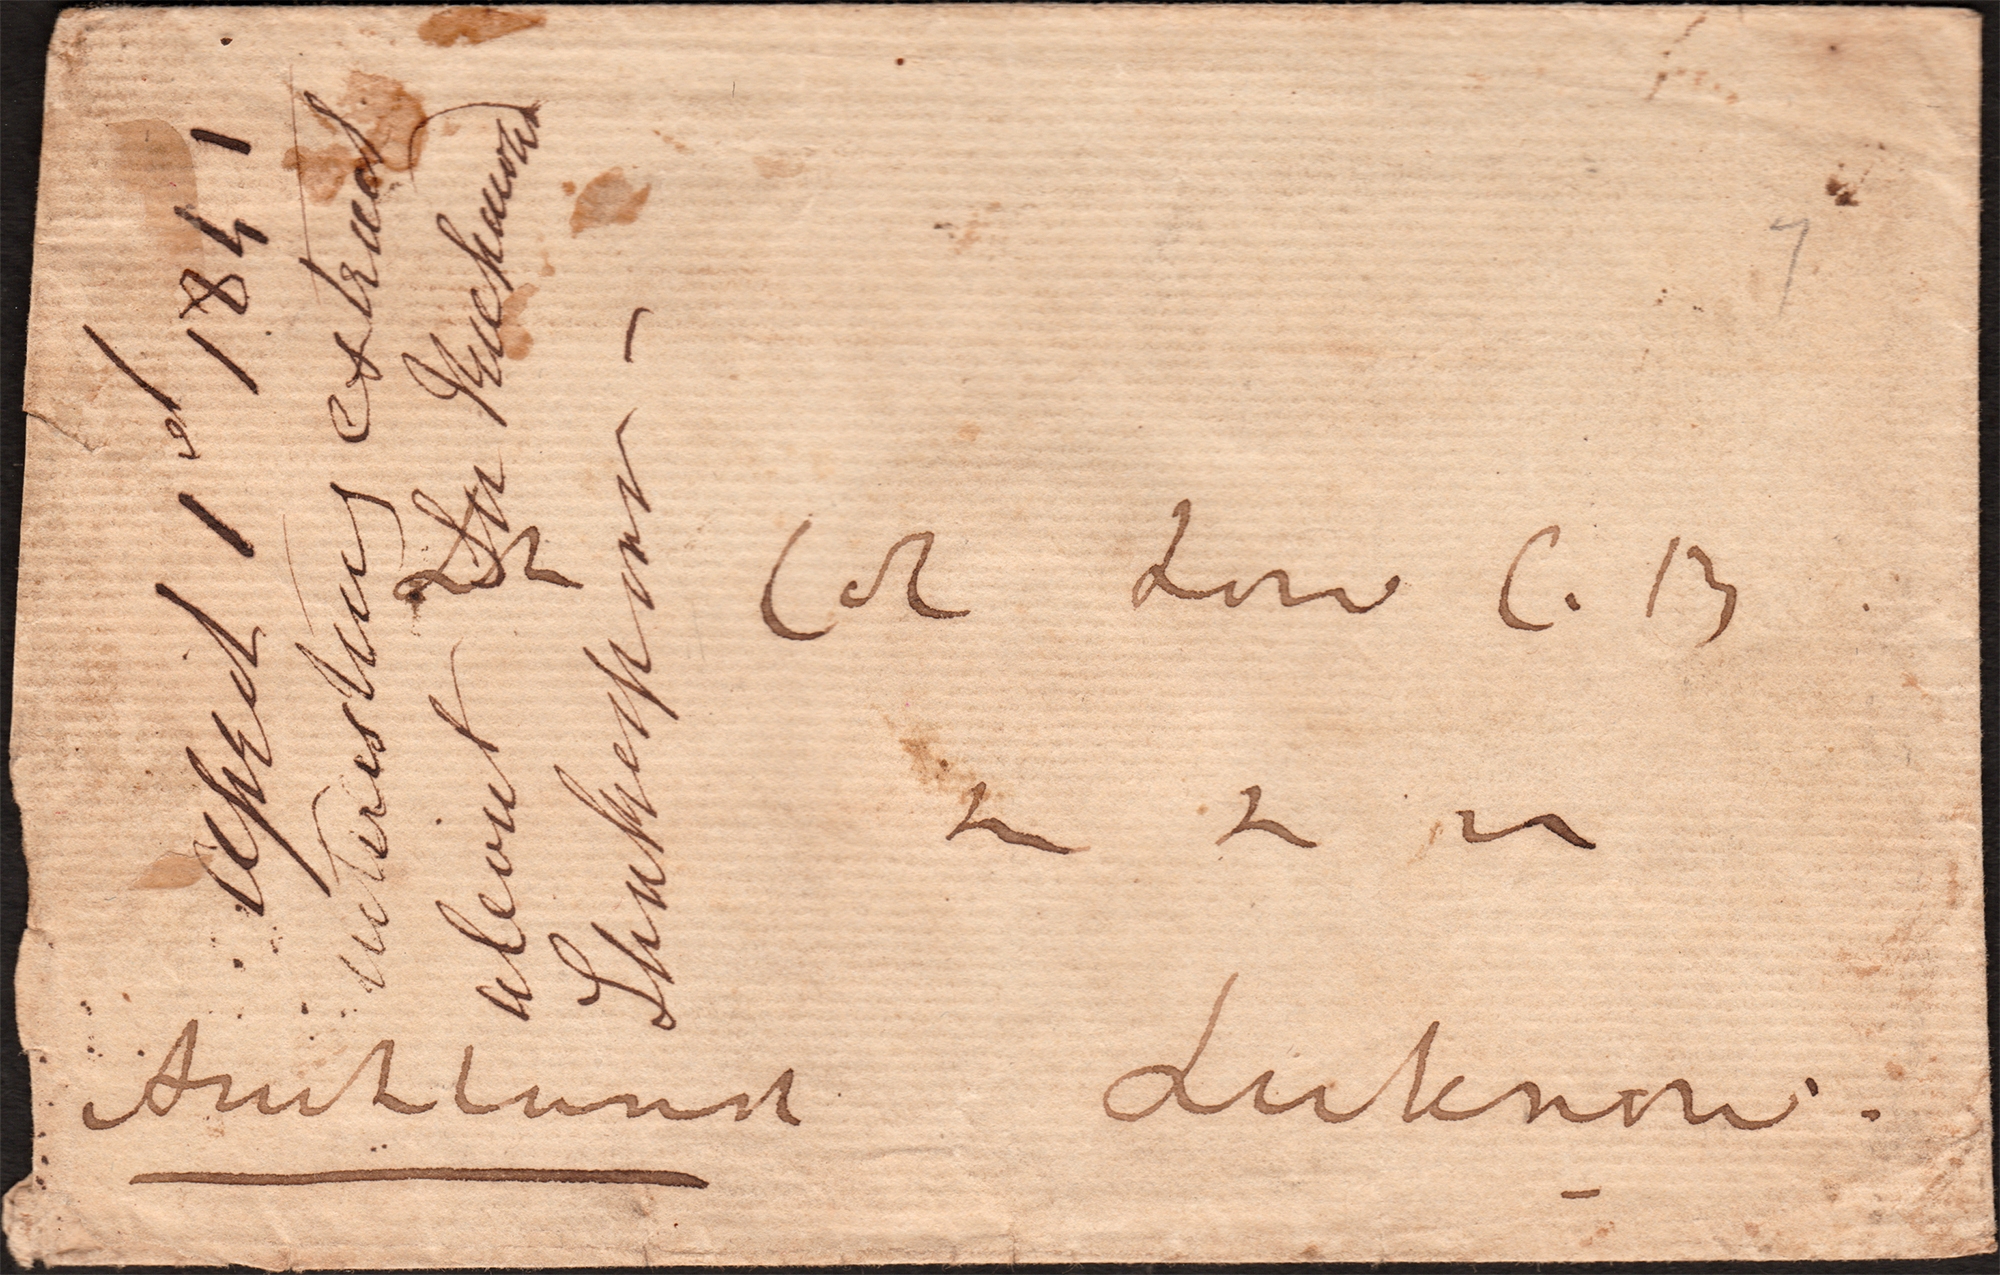 April 1st 1841
interesting extract
about Sir Richmond
Shakespear -
Lt Col Low C. B.
Auckland
Lucknow.
7